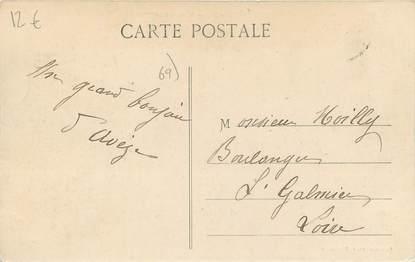 12 €
CARTE POSTALE
69)
Un grand bonjour
d'Avèze
Monsieur Noilly
Boulanger
St Galmier
Loire